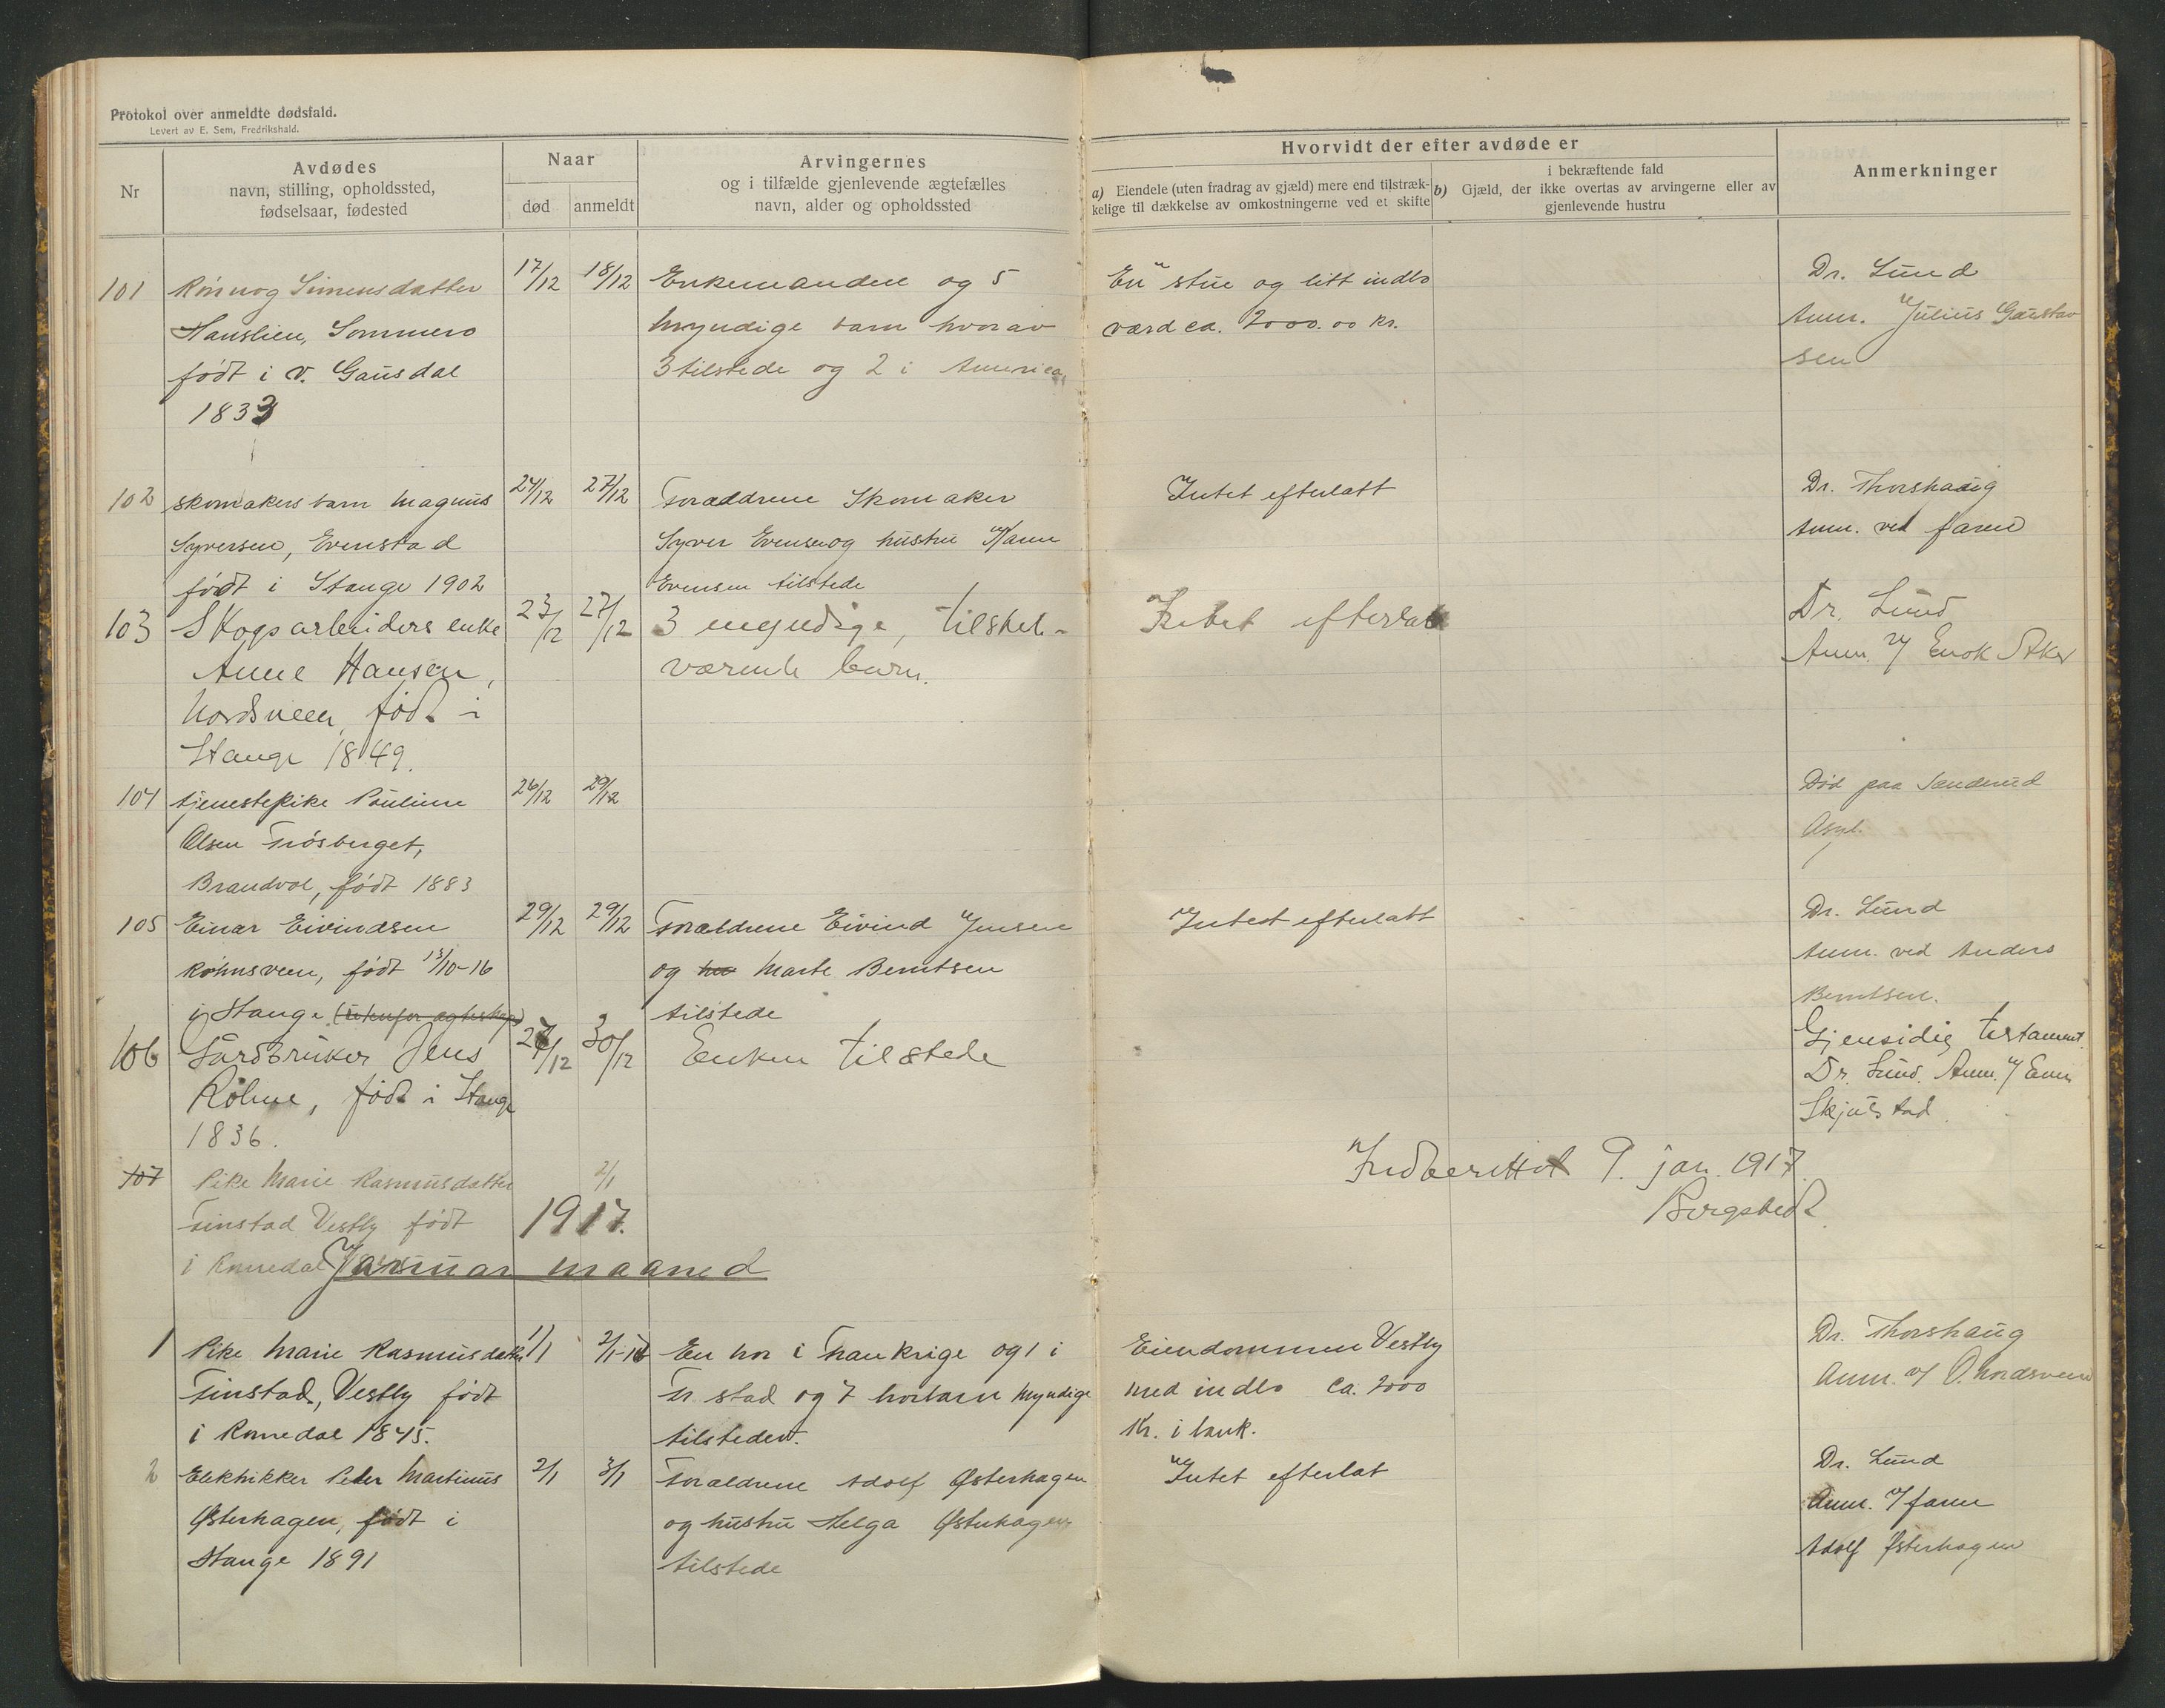 Protokol over anmeldte dødsfald.
Levert av E. Sem, Fredrikshald.
Nr
Avdødes
navn, stilling, opholdssted,
fødselsaar, fødested
Naar
død
anmeldt
Arvingernes
og i tilfælde gjenlevende ægtefælles
navn, alder og opholdssted
Hvorvidt der efter avdøde er
a) Eiendele (uten fradrag av gjæld) mere end tilstræk-
kelige til dækkelse av omkostningerne ved et skifte
i bekræftende fald
b) Gjæld, der ikke overtas av arvingerne eller av
gjenlevende hustru
Anmerkninger
101
Rønnog Simensdatter
Hanslien, Sommero
født i v. Gausdal
1833
17/12
18/12
Enkemanden og 5
myndige barn hvorav
3 tilstede og 2 i America
En stue og litt indbo
værd ca. 2000.00 kr.
Dr. Lund
Anm. Julius Gaustav
sen
102
skomakers barn Magnus
Syversen, Evenstad
født i Stange 1902
24/12
27/12
Foræddrene Skomaker
Syver Evensen og hustru Karen
Evensen tilstede
Intet efterlatt
Dr. Thorshaug
Anm. ved faren
103
Skogsarbeiders enke
Anne Hansen,
Nordsveen, født i
Stange 1849.
23/12
27/12
3 myndige, tilstede-
værende barn.
Intet efterlatt
Dr. Lund
Anm. v/ Enok Aker
104
tjenestepike Pauline
Olsen Frösberget,
Brandvol, født 1883
26/12
29/12
Död paa Sanderud
Asyl.
105
Einar Eivindsen
Röhnsveen, født 13/10-16
i Stange (utenfor ægteskap)
29/12
29/12
Forældrene Eivind Jensen
og Marte Berntsen
tilstede
Intet efterlatt
Dr. Lund
Anm. ved Anders
Berntsen.
106
Gårdbruker Jens
Röhne, født i Stange
1836.
27/12
30/12
Enken tilstede
Gjensidig testament.
Dr. Lund. Anm. v/ Even
Skjulstad
107
Pike Marie Rasmusdatter
Finstad Vestby født
i Romedal
2/1
Indberettet 9. jan. 1917.
Borgstedt
1917.
Januar maaned
1
Pike Marie Rasmusdatter
Finstad, Vestby født
i Romedal 1845.
1/1
2/1-17
En bror i Frankrige og 1 i
Fr. stad og 7 brorbarn myndige
tilstede.
Eiendommen Vestby
med indbo ca. 2000
kr. i bank.
Dr. Thorshaug
Anm. v/ O. Nordsveen
2
Elektrikker Peder Martinus
Østerhagen, født i
Stange 1891
2/1
3/1
Forældrene Adolf Østerhagen
og hustru Helga Østerhagen
tilstede
Intet efterlat
Dr. Lund
Anm. v/ faren
Adolf Østerhagen